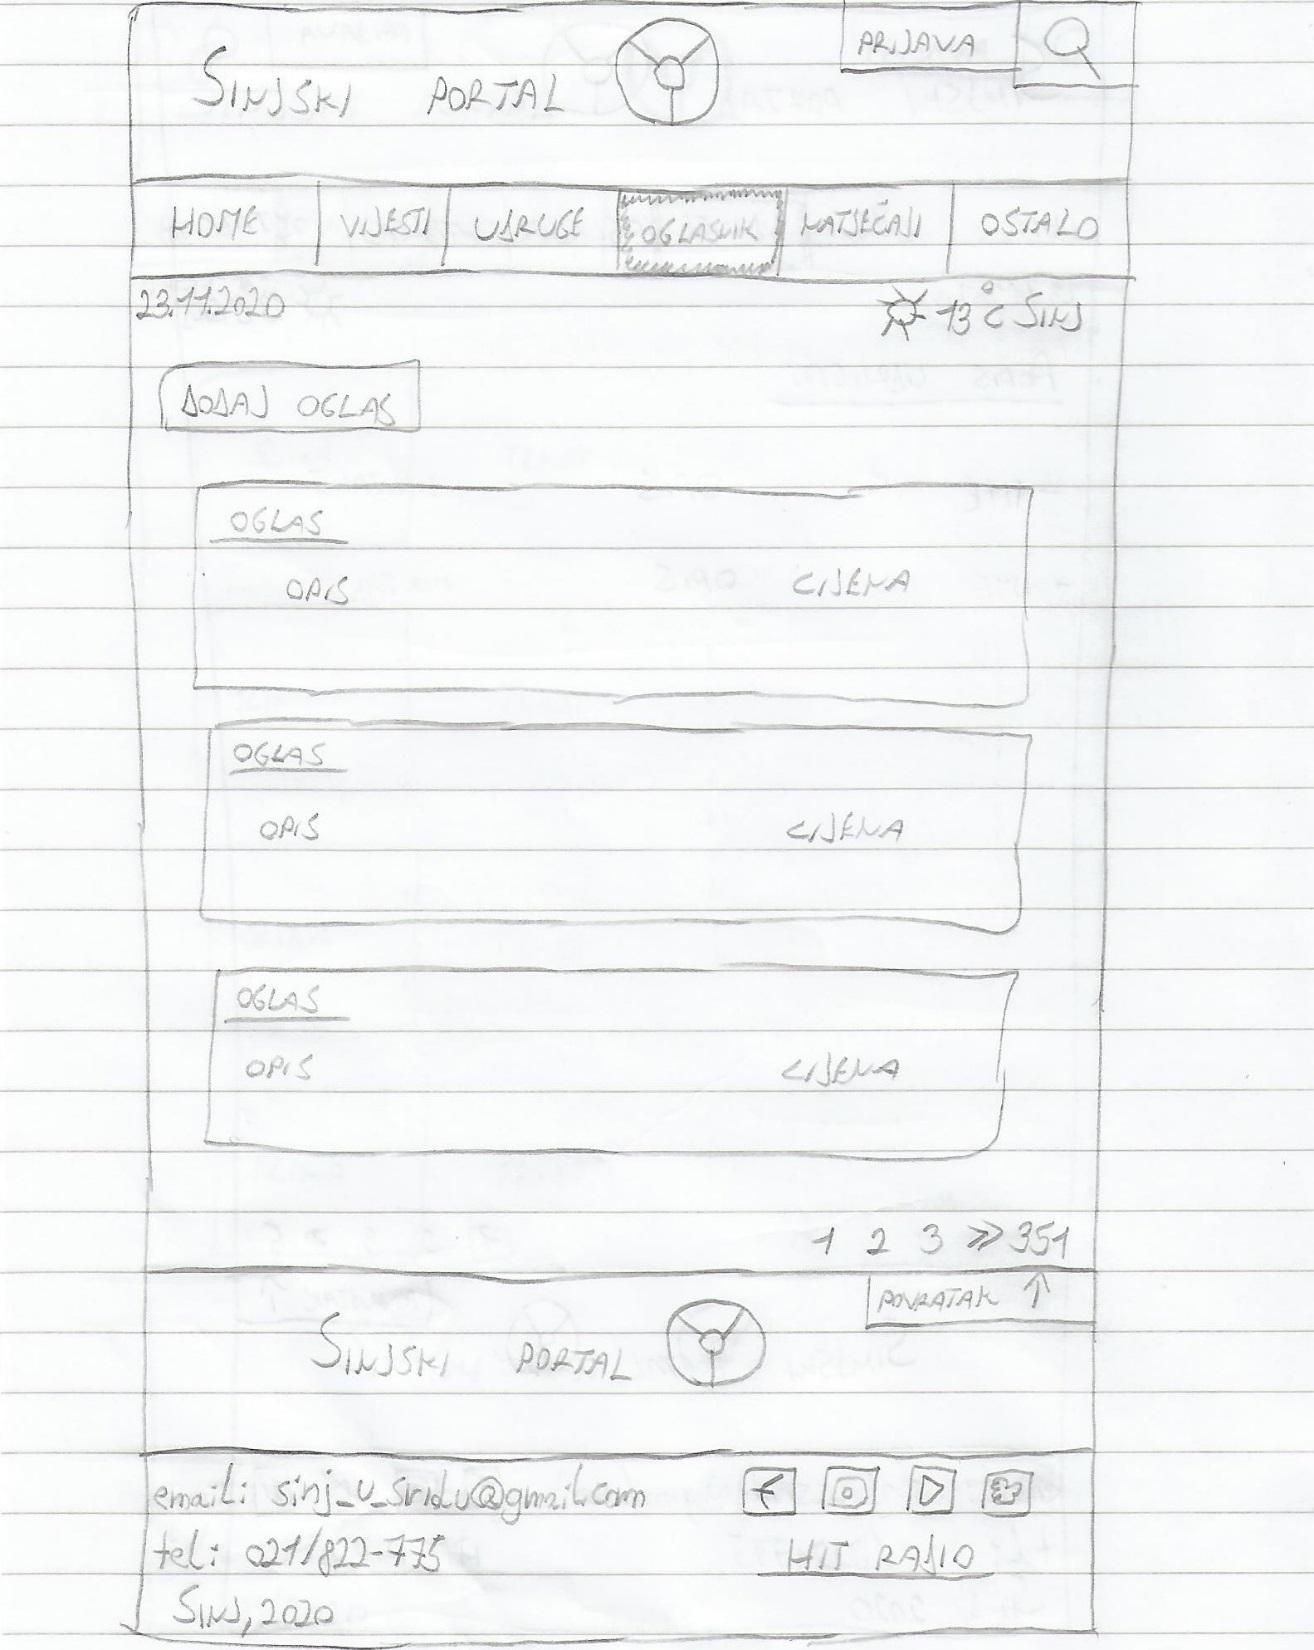 SINJSKI PORTAL
PRIJAVA
HOME VIJESTI UDRUGE OGLASNIK NATJEČAJI OSTALO
23.11.2020 13°C SINJ
DODAJ OGLAS
OGLAS
OPIS CIJENA
OGLAS
OPIS CIJENA
OGLAS
OPIS CIJENA
1 2 3 >> 351
POVRATAK ↑
SINJSKI PORTAL
email: sinj_u_sridu@gmail.com
tel: 021/822-775
HIT RADIO
SINJ, 2020